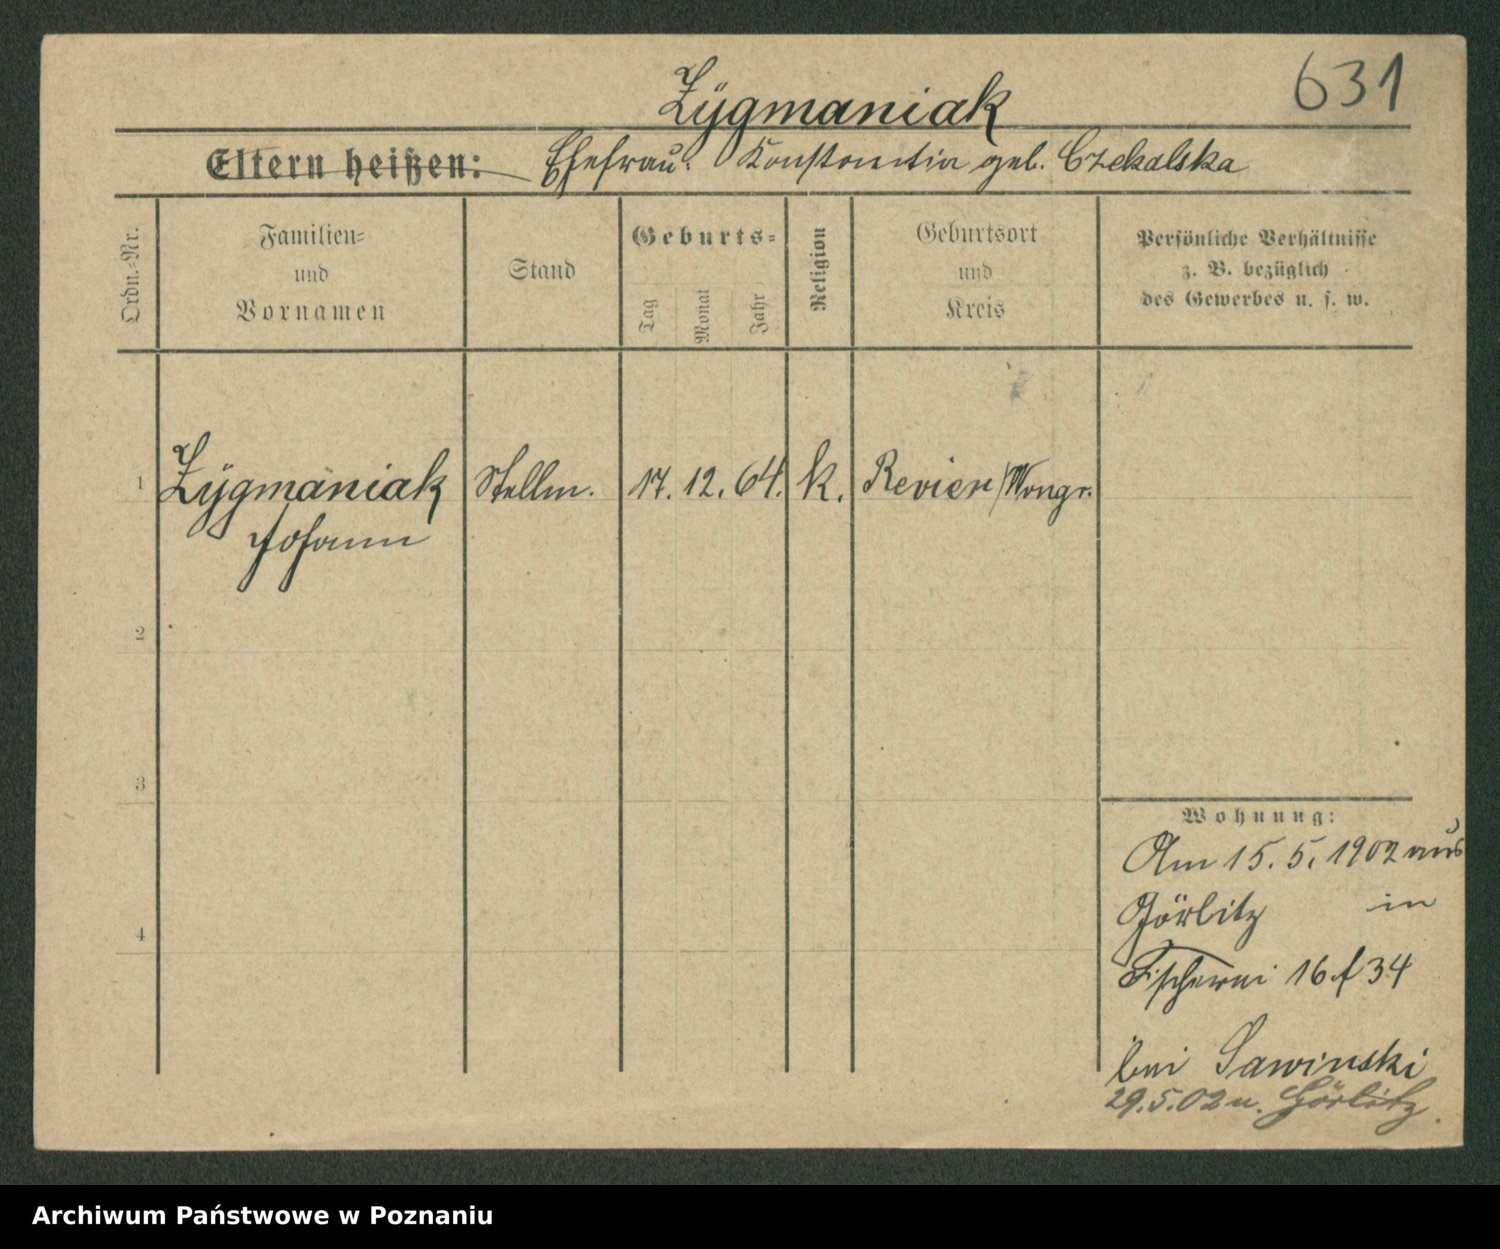 631
Zÿgmaniak
Eltern heißen: Ehefrau: Konstantia geb. Czekalska
Ordn.-Nr.
Familien-
und
Vornamen
Stand
Geburts-
Tag
Monat
Jahr
Religion
Geburtsort
und
Kreis
Persönliche Verhältnisse
z. B. bezüglich
des Gewerbes u. s. w.
1 Zÿgmaniak Stellm. 17. 12. 64. k. Revier/Wongr.
Johann
2
3
Wohnung:
Am 15. 5. 1902 aus
Görlitz in
4
Fischerei 16 f 34
bei Sawinski
29.5.02 n. Görlitz.
Archiwum Państwowe w Poznaniu